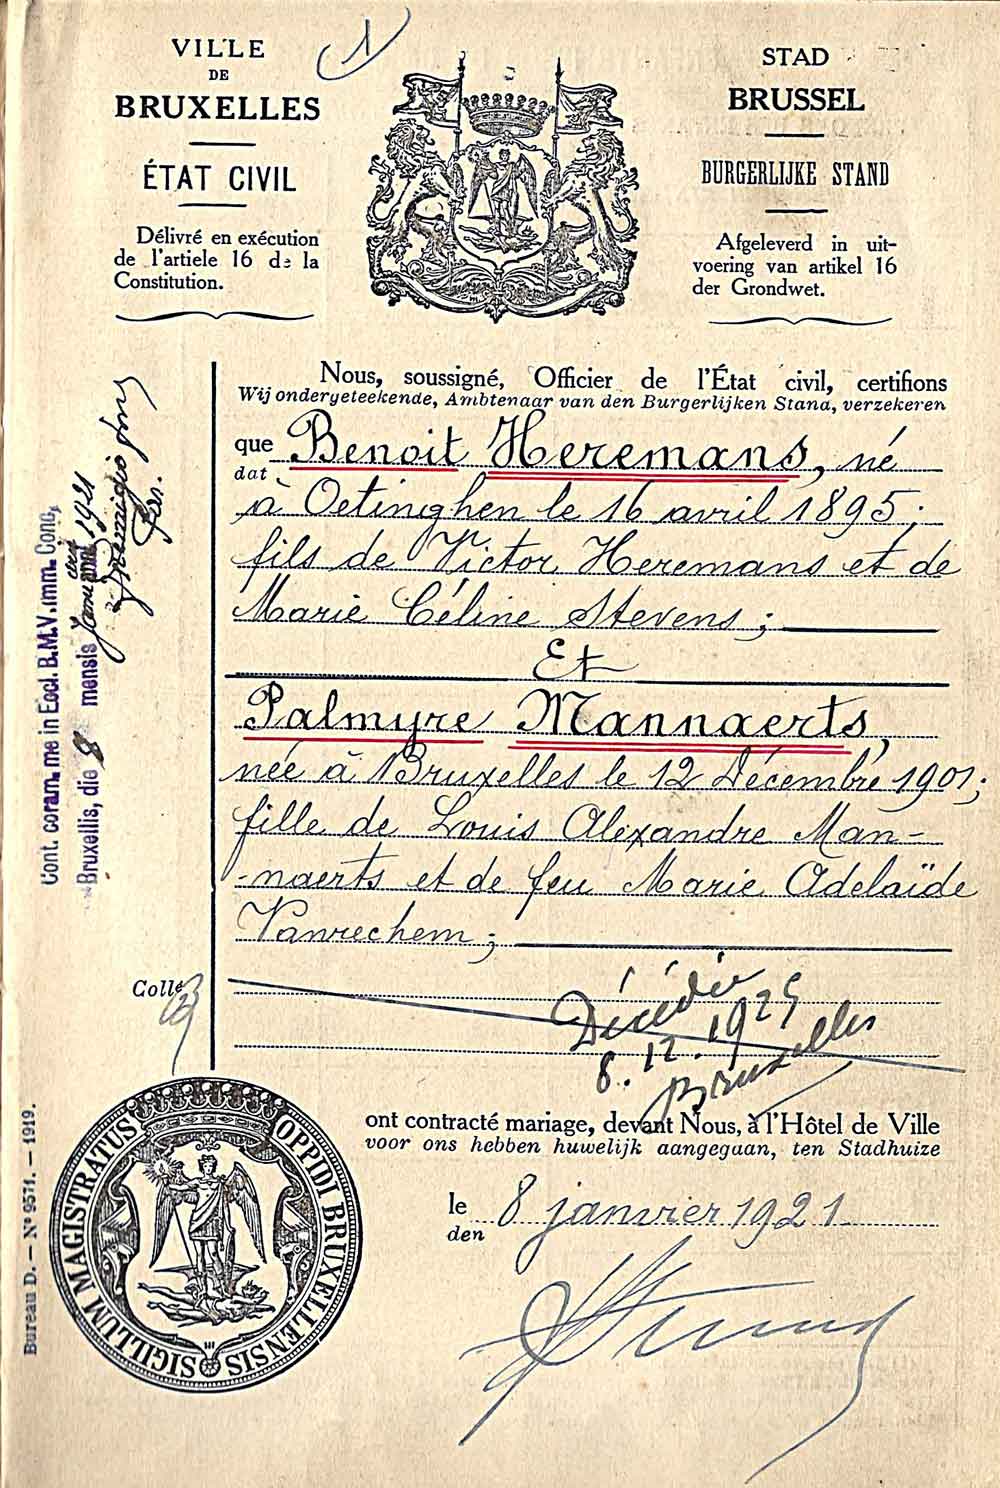 VILLE
DE
BRUXELLES
ÉTAT CIVIL
Délivré en exécution
de l'artiele 16 de la
Constitution.
STAD
BRUSSEL
BURGERLIJKE STAND
Afgeleverd in uit-
voering van artikel 16
der Grondwet.
Nous, soussigné, Officier de l'État civil, certifions
Wij ondergeteekende, Ambtenaar van den Burgerlijken Stand, verzekeren
que Benoit Heremans, né
dat
à Oetinghen le 16 avril 1895;
fils de Victor Heremans et de
Marie Céline Stevens;
Et
Palmyre Mannaerts,
née à Bruxelles le 12 Décembre 1901;
fille de Louis Alexandre Man-
-naerts et de feu Marie Adelaïde
Vanrechem;
Décédée
8.12.1925
Bruxelles
ont contracté mariage, devant Nous, à l'Hôtel de Ville
voor ons hebben huwelijk aangegaan, ten Stadhuize
le 8 janvier 1921
den
Cont. coram. me in Eccl. B.M.V. imm. Conc.
Bruxellis, die 8 mensis Januarii 1921
Collé
SIGILLUM MAGISTRATUS OPPIDI BRUXELLENSIS
Bureau D. — Nº 9571. — 1919.